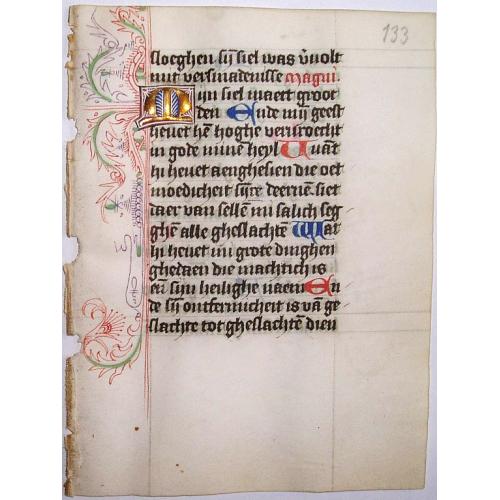 133
sloeghen sij siel was v̄volt
mit versmadenisse Magni.
Mijn siel maect groot
den Ende mijn geest
hevet hē hoghe vervroecht
in gode mine heyl Uāt
hi hevet aenghesien die oet
moedicheit sijre deerne siet
daer van sellē mi salich seg
ghē alle gheslachtē Wāt
hi hevet mi grote dinghen
ghedaen die machtich is
eñ sijn heilighe naem En
de sij ontfermicheit is vā ge
slachte tot gheslachtē dien